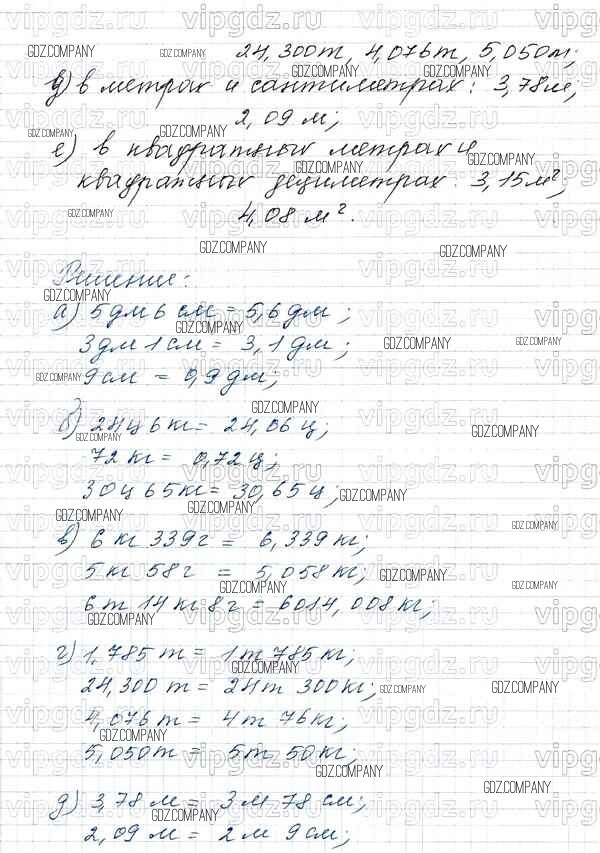 24,300т, 4,076т, 5,050т;
д) в метрах и сантиметрах: 3,78м;
2,09 м;
е) в квадратных метрах и
квадратных дециметрах: 3,15м²,
4,08 м².
Решение:
а) 5дм 6 см = 5,6 дм;
3дм 1см = 3,1 дм;
9см = 0,9 дм;
б) 24ц 6 кг = 24,06 ц;
72 кг = 0,72 ц;
30ц 65кг = 30,65 ц;
в) 6 кг 339г = 6,339 кг;
5 кг 58г = 5,058 кг;
6т 14 кг 8г = 6014,008 кг;
г) 1,785 т = 1т 785 кг;
24,300 т = 24т 300кг;
4,076т = 4т 76кг;
5,050т = 5т 50кг;
д) 3,78 м = 3 м 78 см;
2,09 м = 2 м 9 см;
vipgdz.ru
GDZ.COMPANY